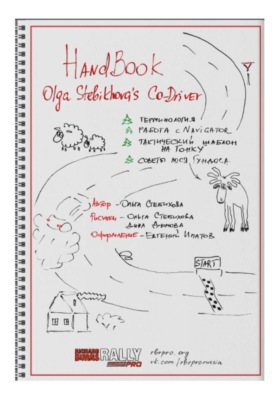 HandBook
Olga Stebikhova's Co-Driver
Терминология
Работа с Navigator
Тактический шаблон
на гонку
Советы Юси Гундоса
Автор - Ольга Стебихова
Рисунки - Ольга Стебихова
Дина
Оформление - Евгений Ипатов
START
RICHARD
BURNS
RALLY
PRO
rbrpro.org
vk.com/rbrprorussia